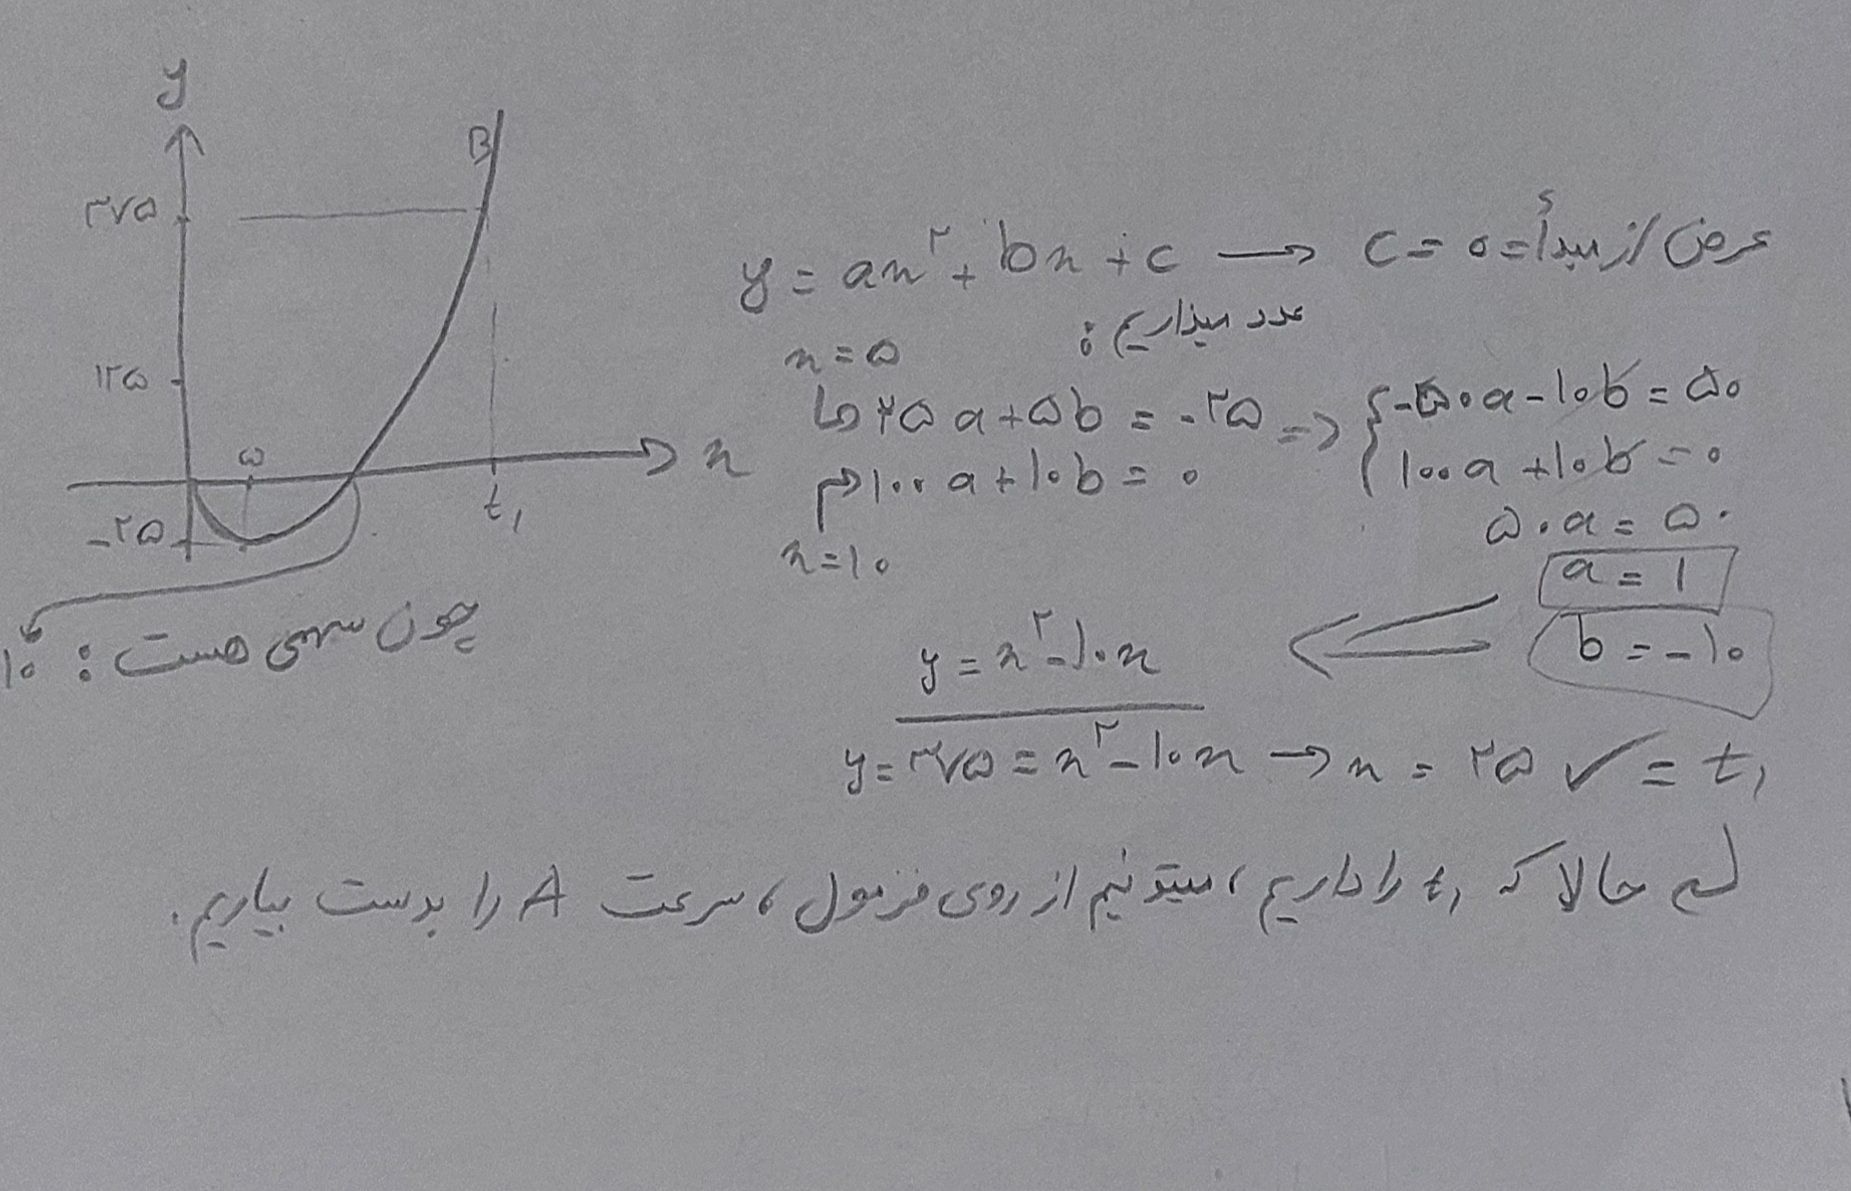 y
B
۳۷۵
۱۲۵
۵
x
t₁
-۲۵
چون سهمی هست : ۱۰
y = ax² + bx + c → c = 0 = عرض از مبدأ
عدد میذاریم :
x = ۵
۲۵a + ۵b = -۲۵ => { -۵۰a - ۱۰b = ۵۰
۱۰۰a + ۱۰b = ۰ { ۱۰۰a + ۱۰b = ۰
x = ۱۰
۵۰a = ۵۰
a = ۱
b = -۱۰
y = x² - ۱۰x
y = ۳۷۵ = x² - ۱۰x → x = ۲۵ ✓ = t₁
حالا که t₁ را داریم، میتونیم از روی فرمول، سرعت A را بدست بیاریم.